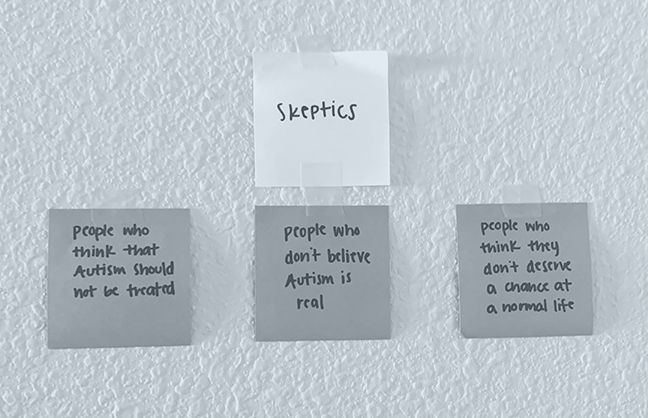 Skeptics
people who
think that
Autism should
not be treated
people who
don't believe
Autism is
real
people who
think they
don't deserve
a chance at
a normal life